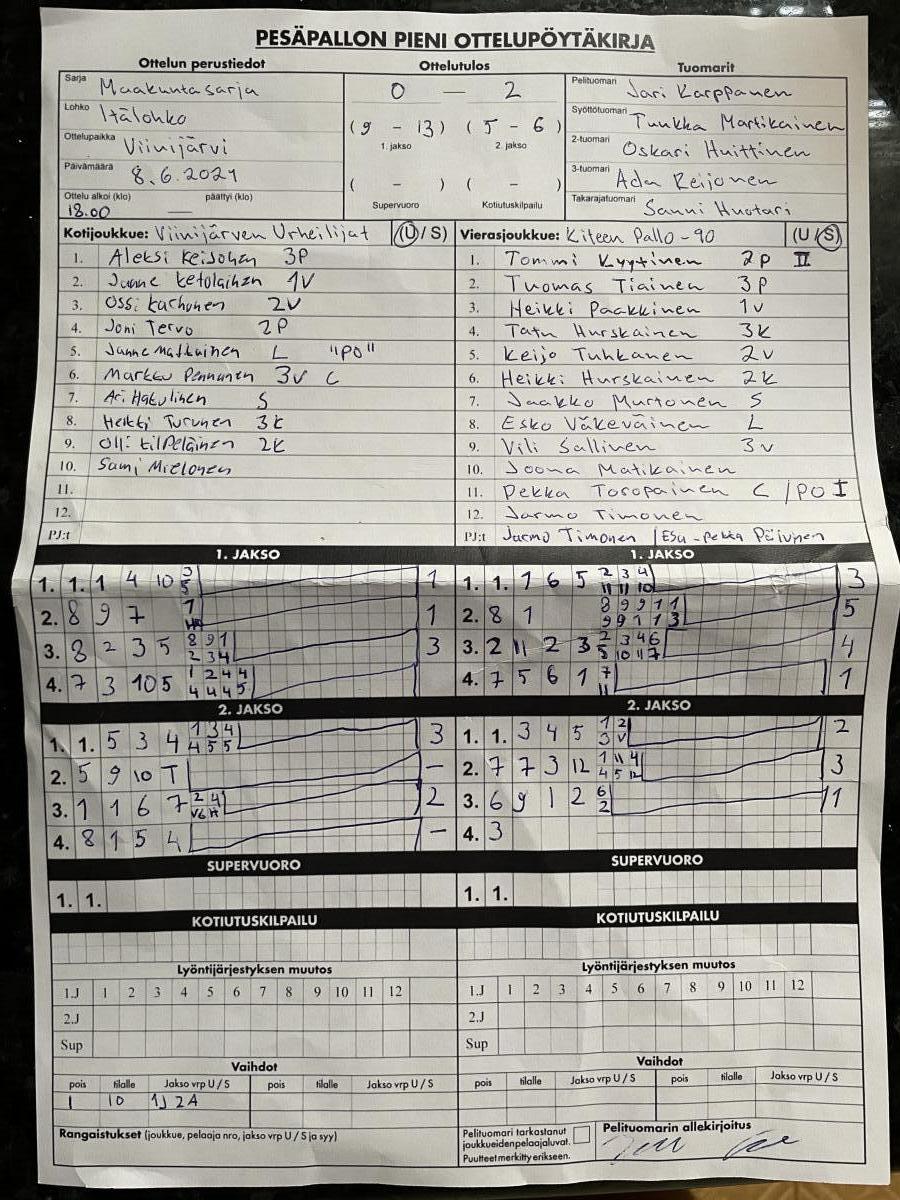 PESÄPALLON PIENI OTTELUPÖYTÄKIRJA
Ottelun perustiedot
Ottelutulos
Tuomarit
Sarja Maakuntasarja
Lohko Itälohko
Ottelupaikka Viinijärvi
Päivämäärä 8.6.2021
Ottelu alkoi (klo) päättyi (klo)
18.00 —
0 — 2
(9 - 13) (5 - 6)
1. jakso 2. jakso
( - ) ( - )
Supervuoro Kotiutuskilpailu
Pelituomari Jari Karppanen
Syöttötuomari Tuukka Martikainen
2-tuomari Oskari Huittinen
3-tuomari Ada Reijonen
Takarajatuomari Sanni Huotari
Kotijoukkue: Viinijärven Urheilijat (U / S)
1. Aleksi Keijonen 3P
2. Janne Ketolainen 1V
3. Ossi Karhunen 2V
4. Joni Tervo 2P
5. Janne Matikainen L "PO"
6. Markku Pennanen 3V C
7. Ari Hakulinen S
8. Heikki Turunen 3K
9. Olli Kilpeläinen 2K
10. Sami Mielonen
11.
12.
PJ:t
Vierasjoukkue: Kiteen Pallo-90 (U / S)
1. Tommi Kyytinen 2P II
2. Tuomas Tiainen 3P
3. Heikki Paakkinen 1V
4. Tatu Hurskainen 3K
5. Keijo Tuhkanen 2V
6. Heikki Hurskainen 2K
7. Jaakko Murtonen S
8. Esko Väkeväinen L
9. Vili Sallinen 3V
10. Joona Matikainen
11. Pekka Toropainen C /PO I
12. Jarmo Timonen
PJ:t Jarmo Timonen / Esa-Pekka Päivinen
1. JAKSO
1. 1. 1 4 10 3 5 1
2. 8 9 7 1 1
3. 8 2 3 5 8 9 1 2 3 4 3
4. 7 3 10 5 1 2 4 4 4 4 4 5
1. JAKSO
1. 1. 1 6 5 2 3 4 11 11 10 3
2. 8 1 8 9 9 1 1 9 9 1 1 3 5
3. 2 11 2 3 2 3 4 6 5 10 11 7 4
4. 7 5 6 1 7 11 1
2. JAKSO
1. 1. 5 3 4 1 3 4 4 5 5 3
2. 5 9 10 T —
3. 1 1 6 7 2 4 V6 H 2
4. 8 1 5 4 —
2. JAKSO
1. 1. 3 4 5 1 2 3 V 2
2. 7 7 3 12 1 11 4 4 5 12 3
3. 6 9 1 2 6 2 1
4. 3
SUPERVUORO
1. 1.
SUPERVUORO
1. 1.
KOTIUTUSKILPAILU
KOTIUTUSKILPAILU
Lyöntijärjestyksen muutos
1.J 1 2 3 4 5 6 7 8 9 10 11 12
2.J
Sup
Lyöntijärjestyksen muutos
1.J 1 2 3 4 5 6 7 8 9 10 11 12
2.J
Sup
Vaihdot
pois tilalle Jakso vrp U / S pois tilalle Jakso vrp U / S
1 10 1J 2A
Vaihdot
pois tilalle Jakso vrp U / S pois tilalle Jakso vrp U / S
Rangaistukset (joukkue, pelaaja nro, jakso vrp U / S ja syy)
Pelituomari tarkastanut
joukkueiden pelaajaluvat.
Puutteet merkitty erikseen.
Pelituomarin allekirjoitus